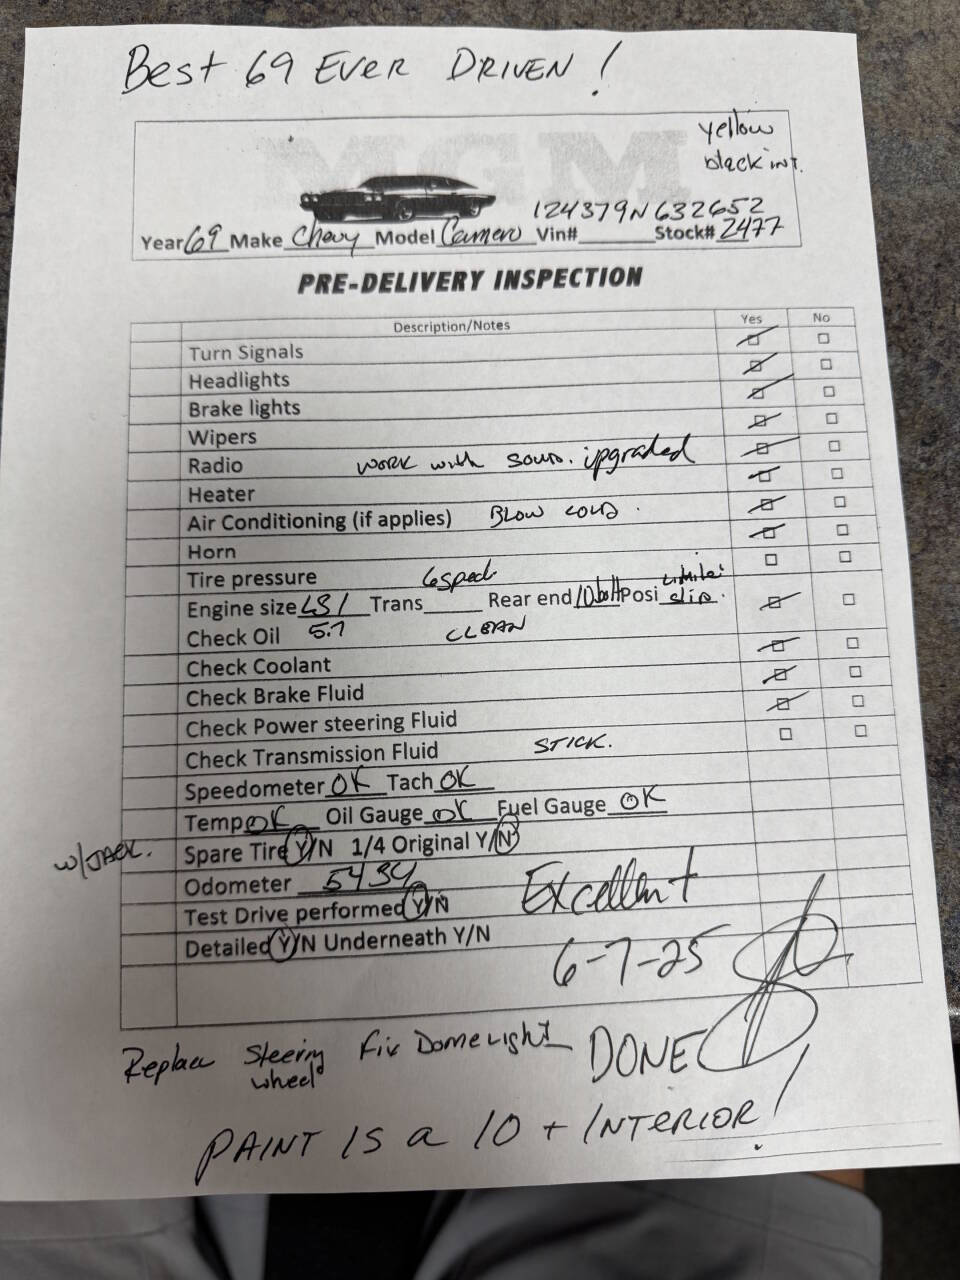 Best 69 Ever Driven!
MGM
yellow
black int.
124379N632652
Year 69 Make Chevy Model Camero Vin# Stock# 2477
PRE-DELIVERY INSPECTION
Description/Notes Yes No
Turn Signals
Headlights
Brake lights
Wipers
Radio work with soun. ipgraded
Heater
Air Conditioning (if applies) Blow cold.
Horn
Tire pressure
6 sped. Limite:
Engine size LS1 Trans Rear end 10 bolt Posi slip.
Check Oil 5.7 CLEAN
Check Coolant
Check Brake Fluid
Check Power steering Fluid
Check Transmission Fluid STICK.
Speedometer OK Tach OK
Temp OK Oil Gauge OK Fuel Gauge OK
w/JACK. Spare Tire Y/N 1/4 Original Y/N
Odometer 5434
Test Drive performed Y/N Excellent
Detailed Y/N Underneath Y/N
6-7-25
Replace Steering wheel Fix Dome Light DONE
PAINT IS a 10 + INTERIOR!